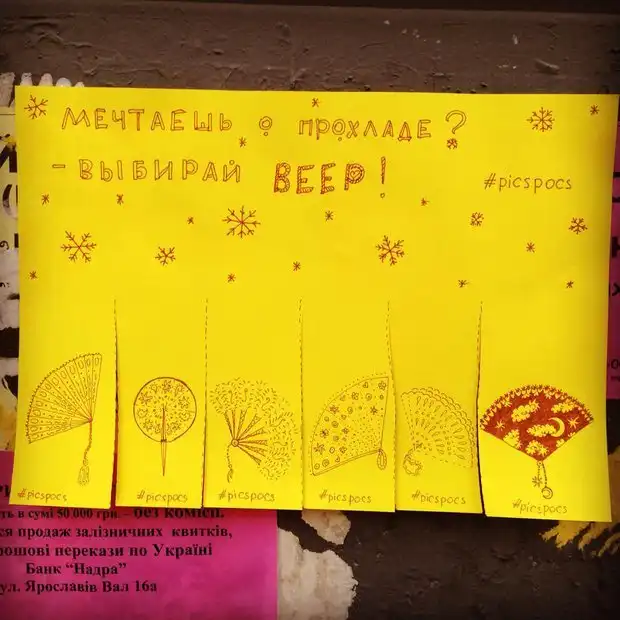 МЕЧТАЕШЬ О ПРОХЛАДЕ?
- ВЫБИРАЙ ВЕЕР!
#picspocs
#picspocs
#picspocs
#picspocs
#picspocs
#picspocs
#picspocs
в сумі 50 000 грн. – без комісії.
ся продаж залізничних квитків,
рошові перекази по Україні
Банк “Надра”
ул. Ярославів Вал 16а